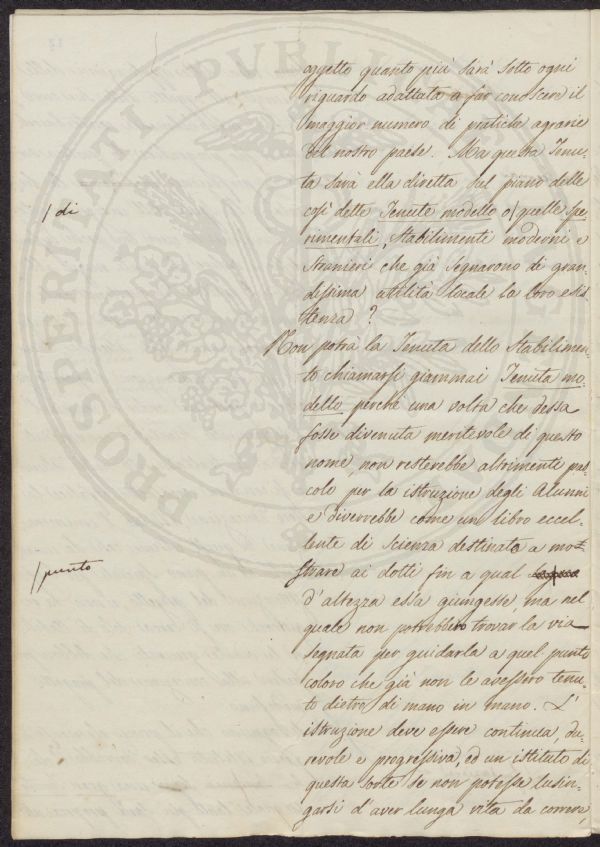 oggetto quanto più sarà sotto ogni
riguardo adattata a far conoscere il
maggior numero di pratiche agrarie
del nostro paese. Ma questa Tenu-
ta sarà ella diretta sul piano delle
/ di
così dette Tenute modello o / quelle spe-
rimentali, Stabilimenti moderni e
stranieri che già segnarono di gran-
dissima utilità locale la loro esis
tenza?
Non potrà la Tenuta dello Stabilimen-
to chiamarsi giammai Tenuta mo-
dello perchè una volta che dessa
fosse divenuta meritevole di questo
nome, non resterebbe altrimenti pas
colo per la istruzione degli Alunni
e diverrebbe come un libro eccel-
lente di scienza destinato a mo-
/ punto
strare ai dotti fin a qual
d'altezza essa giungesse, ma nel
quale non potrebbero trovar la via
segnata per guidarla a quel punto
coloro che già non le avessero tenu-
to dietro di mano in mano. L'
istruzione deve essere continua, du-
revole e progressiva, ed un istituto di
questa sorte se non potesse lusin-
garsi d'aver lunga vita da correre,
PROSPERITATI PVBLI